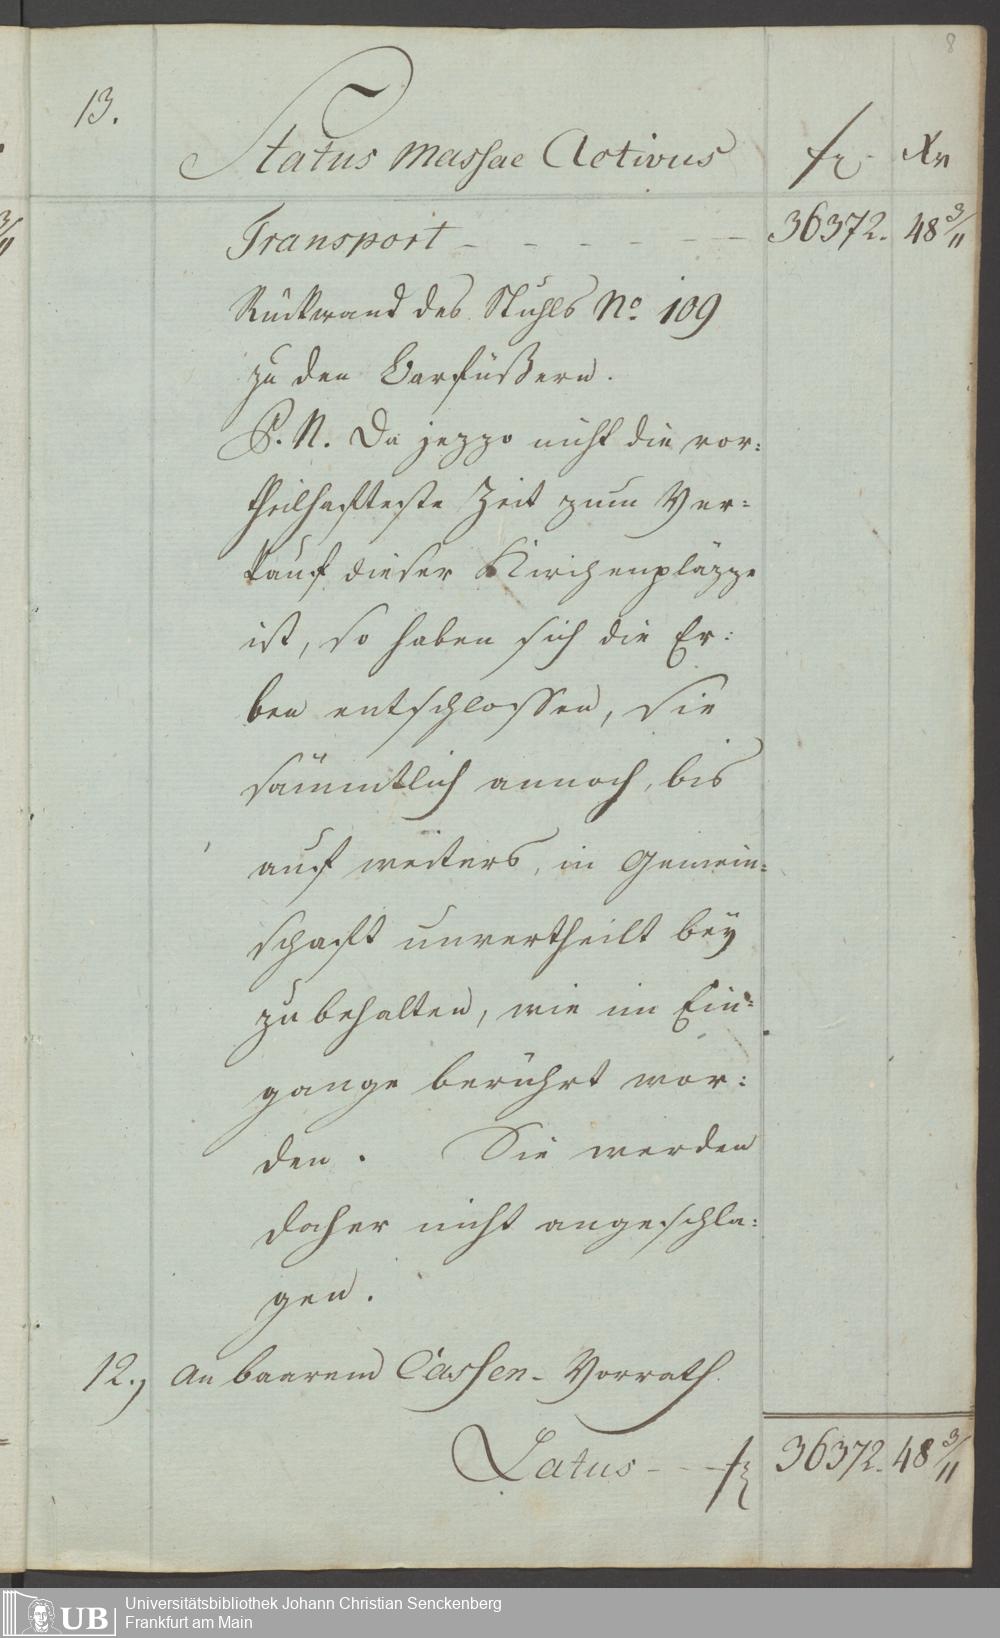 8
13.
Status Massae Activus f Xr
Transport - - - - - - 36372. 48 3/11
Rückwand des Stuhls No. 109
zu den Barfüßern.
P. N. Da jezzo nicht die vor:
theilhafteste Zeit zum Ver:
kauf dieser Kirchenpläzze
ist, so haben sich die Er:
ben entschlossen, sie
sämmtlich annoch, bis
auf weiters, in Gemein:
schafft unvertheilt bey
zu behalten, wie im Ein:
gange berührt wor:
den. Sie werden
daher nicht angeschla:
gen.
12., An baarem Cassen-Vorrath.
Latus - - f 36372. 48 3/11
UB Universitätsbibliothek Johann Christian Senckenberg
Frankfurt am Main